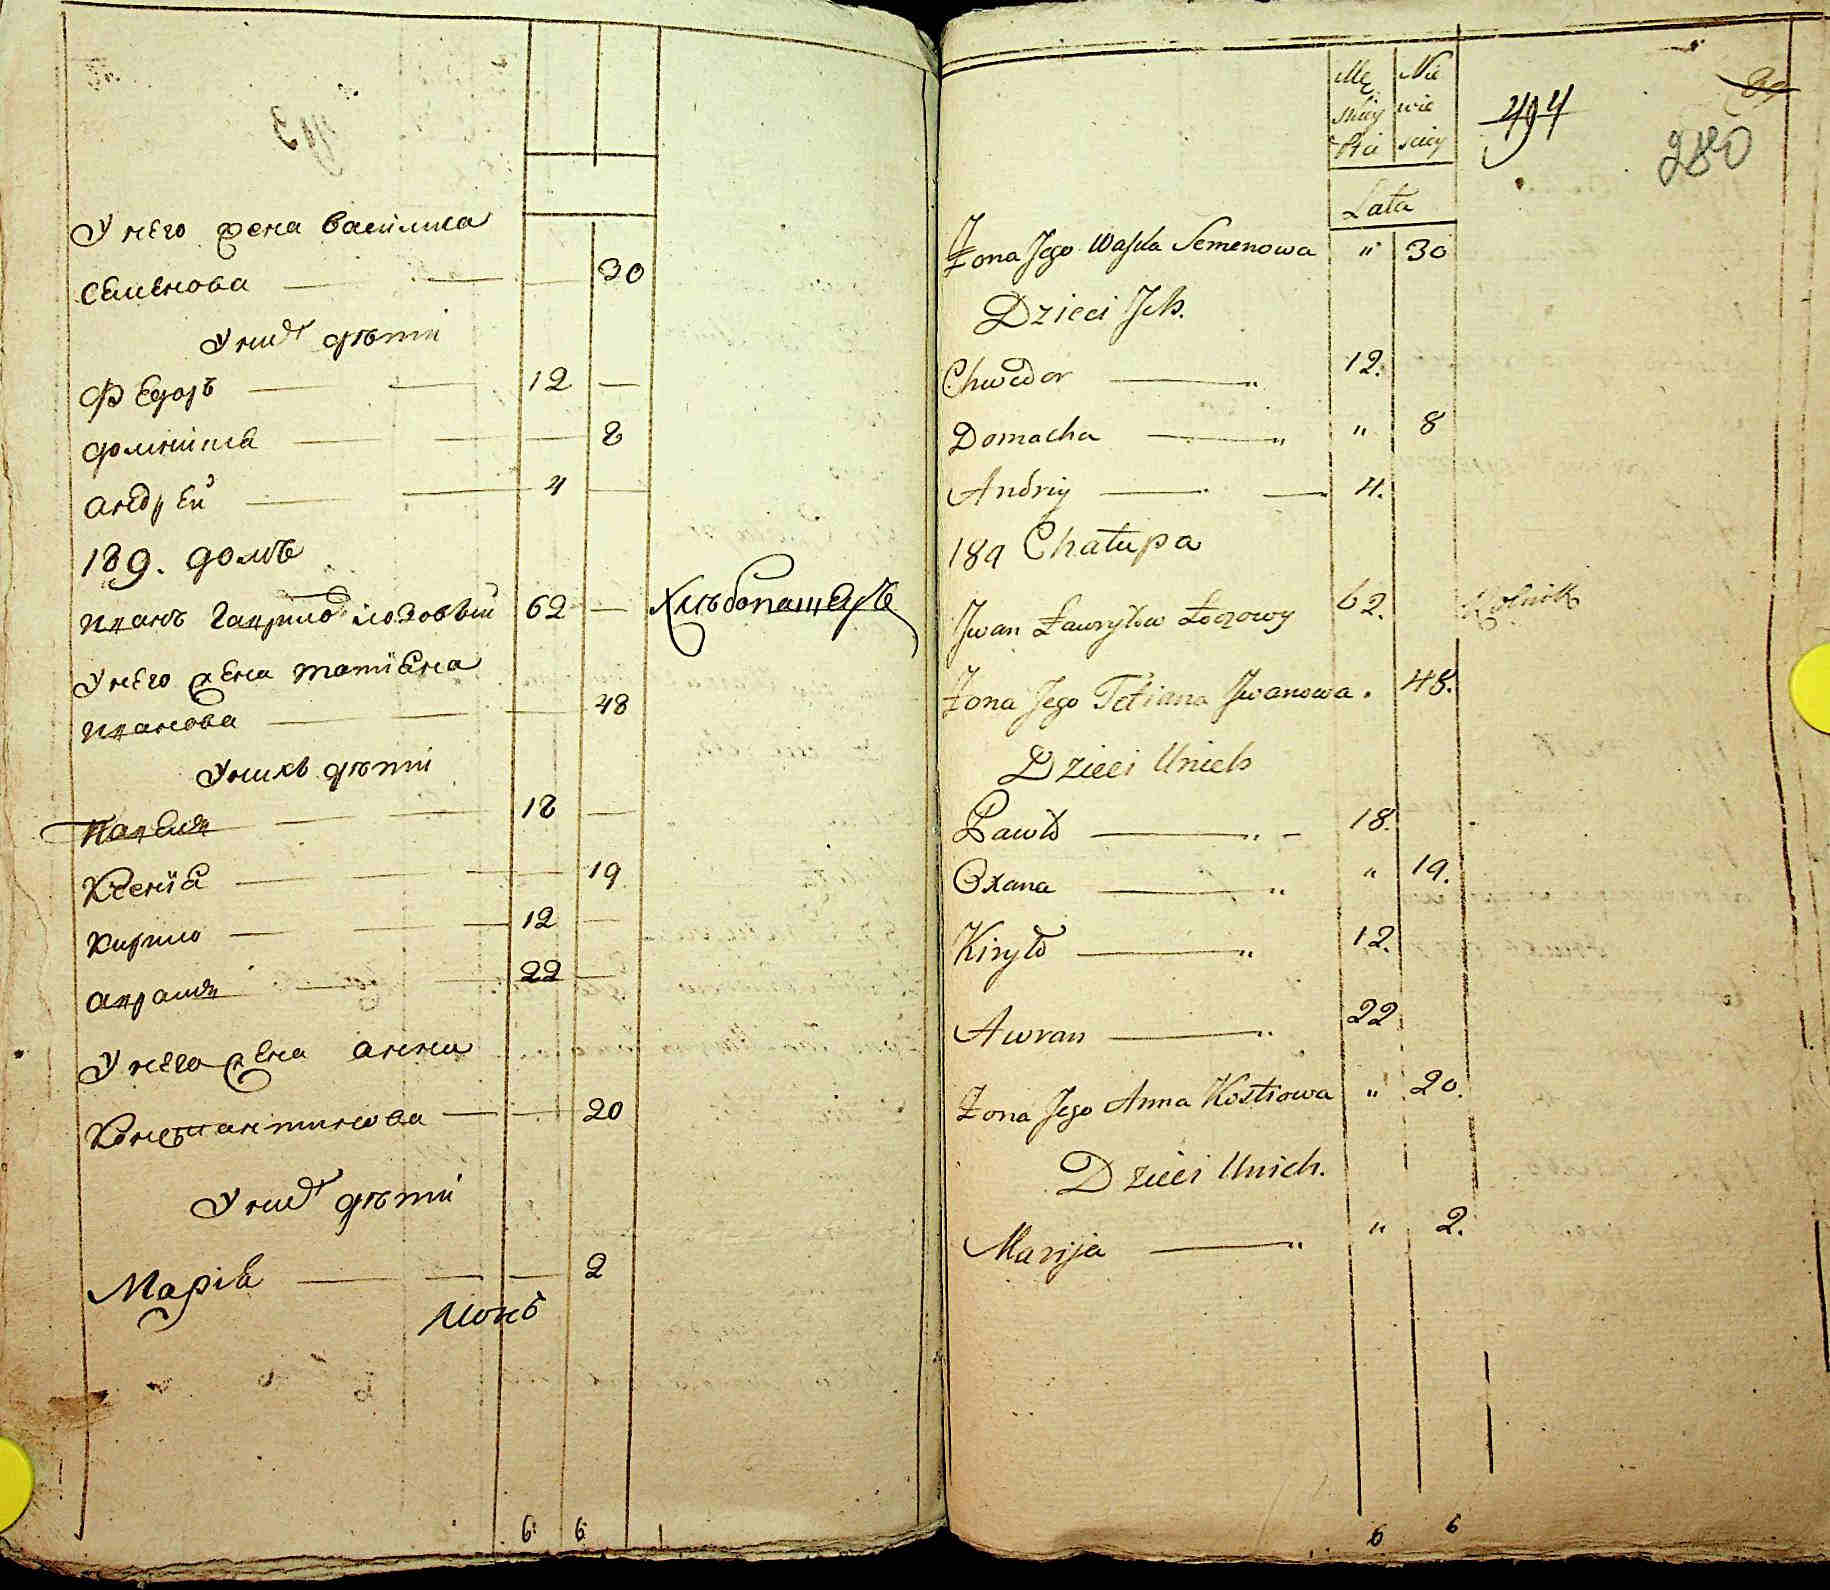 У него жена васились
Семенова 30
У них дѣти
Федоръ 12
Домникія 8
Андрей 4
189. домъ
иванъ Гаврилов лозовый 62 Хлѣбопашецъ
У него жена татіяна
иванова 48
У нихъ дѣти
павелъ 18
Ксенія 19
Кирило 12
аврамъ 22
У него жена анна
Константинова 20
У них дѣти
Марія 2
6 6
Mę Nie
skiey wie
Płci sciey
494
280
Lata
Żona Jego Waska Semenowa " 30
Dzieci Jch.
Chwedor " 12.
Domacha " " 8
Andriy 4.
189 Chałupa
Jwan Ławryłow Łozowy 62. Rolnik
Żona Jego Tetiana Jwanowa . 48.
Dzieci Unich
Pawło " 18.
Oxana " " 19.
Kiryło " 12.
Awran " 22
Żona Jego Anna Kostiowa " 20.
Dzieci Unich.
Marija " " 2.
6 6